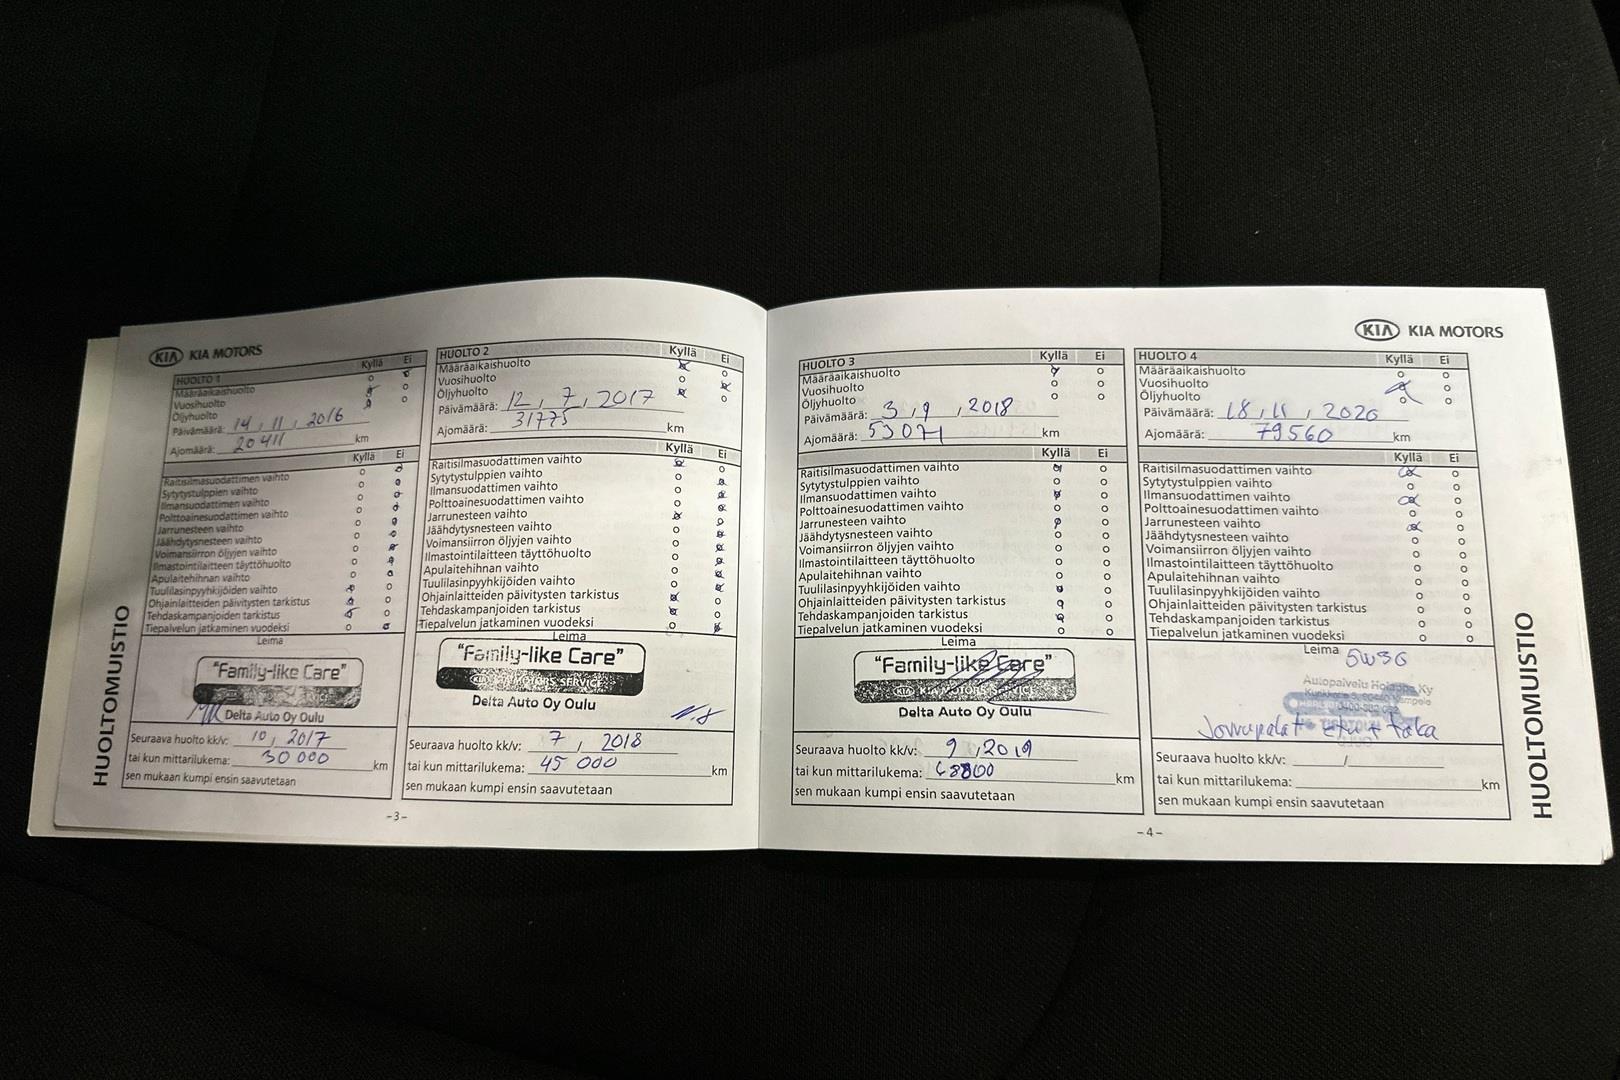 KIA KIA MOTORS
HUOLTO 1 Kyllä Ei
Määräaikaishuolto
Vuosihuolto
Öljyhuolto
Päivämäärä: 14, 11, 2016
Ajomäärä: 20411 km
Kyllä Ei
Raitisilmasuodattimen vaihto
Sytytystulppien vaihto
Ilmansuodattimen vaihto
Polttoainesuodattimen vaihto
Jarrunesteen vaihto
Jäähdytysnesteen vaihto
Voimansiirron öljyjen vaihto
Ilmastointilaitteen täyttöhuolto
Apulaitehihnan vaihto
Tuulilasinpyyhkijöiden vaihto
Ohjainlaitteiden päivitysten tarkistus
Tehdaskampanjoiden tarkistus
Tiepalvelun jatkaminen vuodeksi
Leima
"Family-like Care"
KIA MOTORS SERVICE
Delta Auto Oy Oulu
Seuraava huolto kk/v: 10, 2017
tai kun mittarilukema: 30 000 km
sen mukaan kumpi ensin saavutetaan
HUOLTOMUISTIO
HUOLTO 2 Kyllä Ei
Määräaikaishuolto
Vuosihuolto
Öljyhuolto
Päivämäärä: 12, 7, 2017
Ajomäärä: 31775 km
Kyllä Ei
Raitisilmasuodattimen vaihto
Sytytystulppien vaihto
Ilmansuodattimen vaihto
Polttoainesuodattimen vaihto
Jarrunesteen vaihto
Jäähdytysnesteen vaihto
Voimansiirron öljyjen vaihto
Ilmastointilaitteen täyttöhuolto
Apulaitehihnan vaihto
Tuulilasinpyyhkijöiden vaihto
Ohjainlaitteiden päivitysten tarkistus
Tehdaskampanjoiden tarkistus
Tiepalvelun jatkaminen vuodeksi
Leima
"Family-like Care"
KIA MOTORS SERVICE
Delta Auto Oy Oulu
Seuraava huolto kk/v: 7, 2018
tai kun mittarilukema: 45 000 km
sen mukaan kumpi ensin saavutetaan
-3-
HUOLTO 3 Kyllä Ei
Määräaikaishuolto
Vuosihuolto
Öljyhuolto
Päivämäärä: 3, 9, 2018
Ajomäärä: 53071 km
Kyllä Ei
Raitisilmasuodattimen vaihto
Sytytystulppien vaihto
Ilmansuodattimen vaihto
Polttoainesuodattimen vaihto
Jarrunesteen vaihto
Jäähdytysnesteen vaihto
Voimansiirron öljyjen vaihto
Ilmastointilaitteen täyttöhuolto
Apulaitehihnan vaihto
Tuulilasinpyyhkijöiden vaihto
Ohjainlaitteiden päivitysten tarkistus
Tehdaskampanjoiden tarkistus
Tiepalvelun jatkaminen vuodeksi
Leima
"Family-like Care"
KIA MOTORS SERVICE
Delta Auto Oy Oulu
Seuraava huolto kk/v: 9, 2019
tai kun mittarilukema: km
sen mukaan kumpi ensin saavutetaan
KIA KIA MOTORS
HUOLTO 4 Kyllä Ei
Määräaikaishuolto
Vuosihuolto
Öljyhuolto
Päivämäärä: 18, 11, 2020
Ajomäärä: 79560 km
Kyllä Ei
Raitisilmasuodattimen vaihto
Sytytystulppien vaihto
Ilmansuodattimen vaihto
Polttoainesuodattimen vaihto
Jarrunesteen vaihto
Jäähdytysnesteen vaihto
Voimansiirron öljyjen vaihto
Ilmastointilaitteen täyttöhuolto
Apulaitehihnan vaihto
Tuulilasinpyyhkijöiden vaihto
Ohjainlaitteiden päivitysten tarkistus
Tehdaskampanjoiden tarkistus
Tiepalvelun jatkaminen vuodeksi
Leima 5W30
Autopalvelu Ky
Jarrupalat etu + taka
Seuraava huolto kk/v: /
tai kun mittarilukema: km
sen mukaan kumpi ensin saavutetaan
HUOLTOMUISTIO
-4-